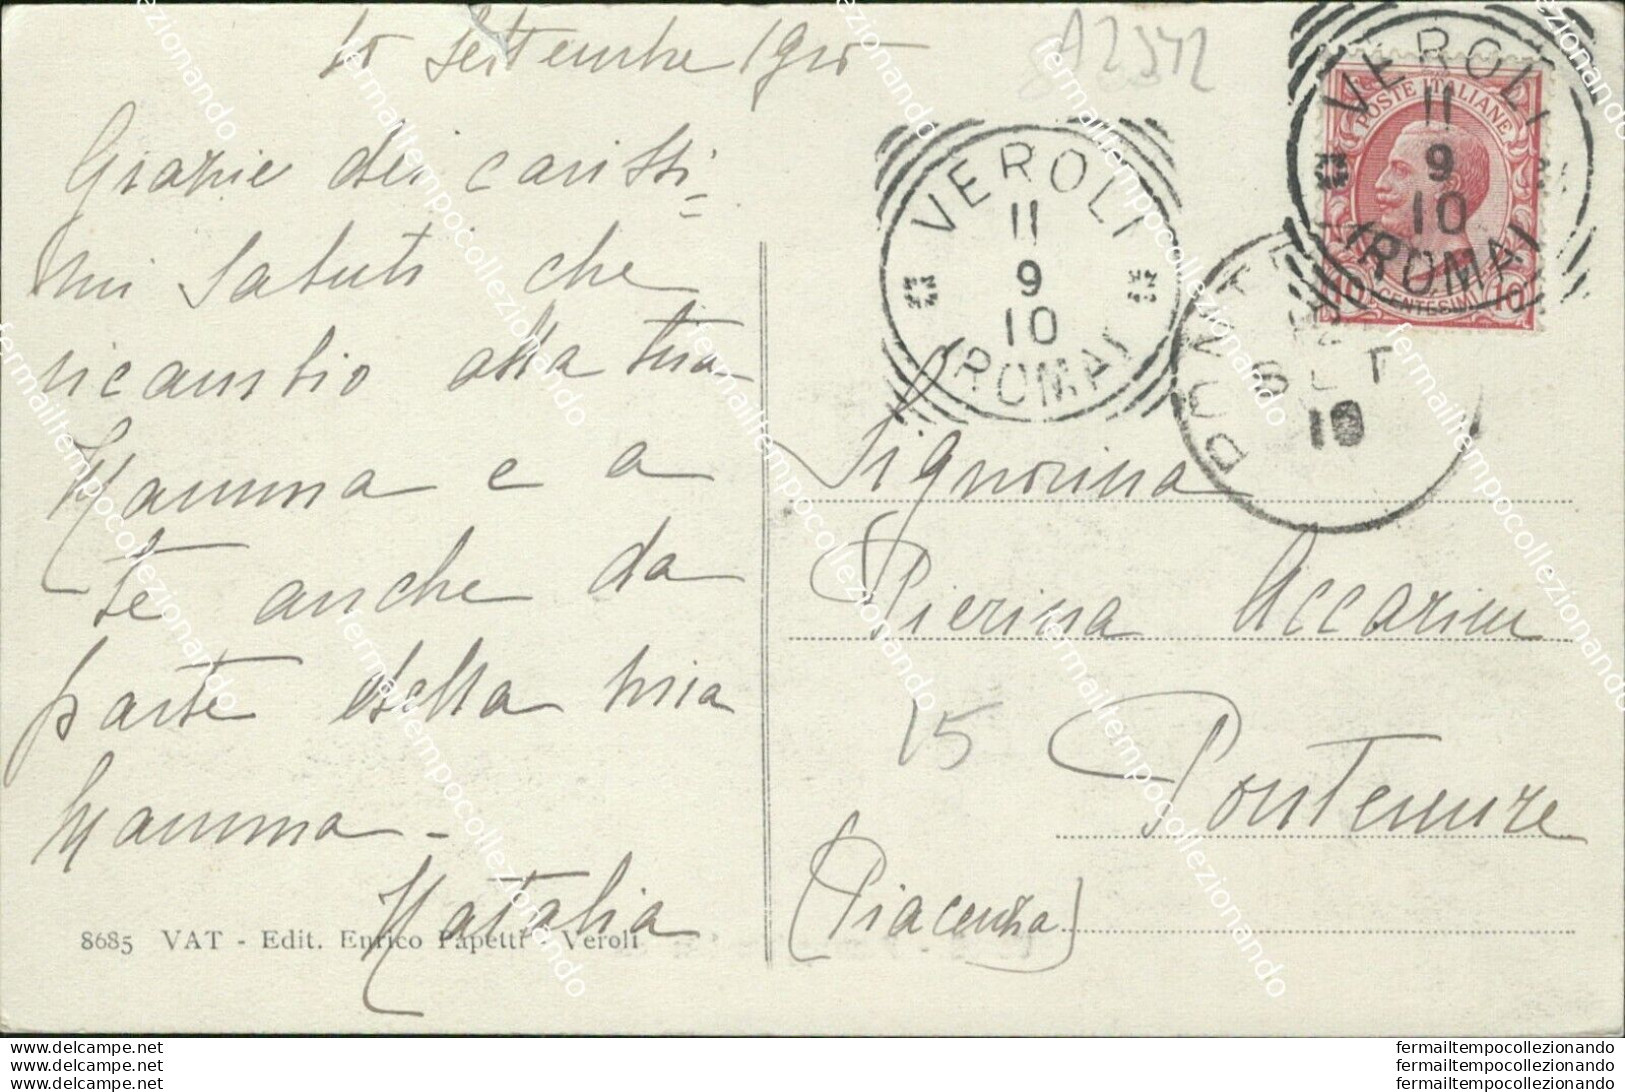 10 Settembre 1910
A2342
Grazie dei carissi=
mi saluti che
ricambio alla tua
Mamma e a
te anche da
parte della mia
Mamma -
Natalia
8685 VAT - Edit. Enrico Papetti - Veroli
VEROLI
11
9
10
(ROMA)
VEROLI
11
9
10
(ROMA)
POSTE ITALIANE
10 CENTESIMI 10
PONTE
SET
10
Signorina
Pierina Accarini
15
Pontenure
(Piacenza)
www.delcampe.net
www.delcampe.net
www.delcampe.net
fermailtempocollezionando
fermailtempocollezionando
fermailtempocollezionando